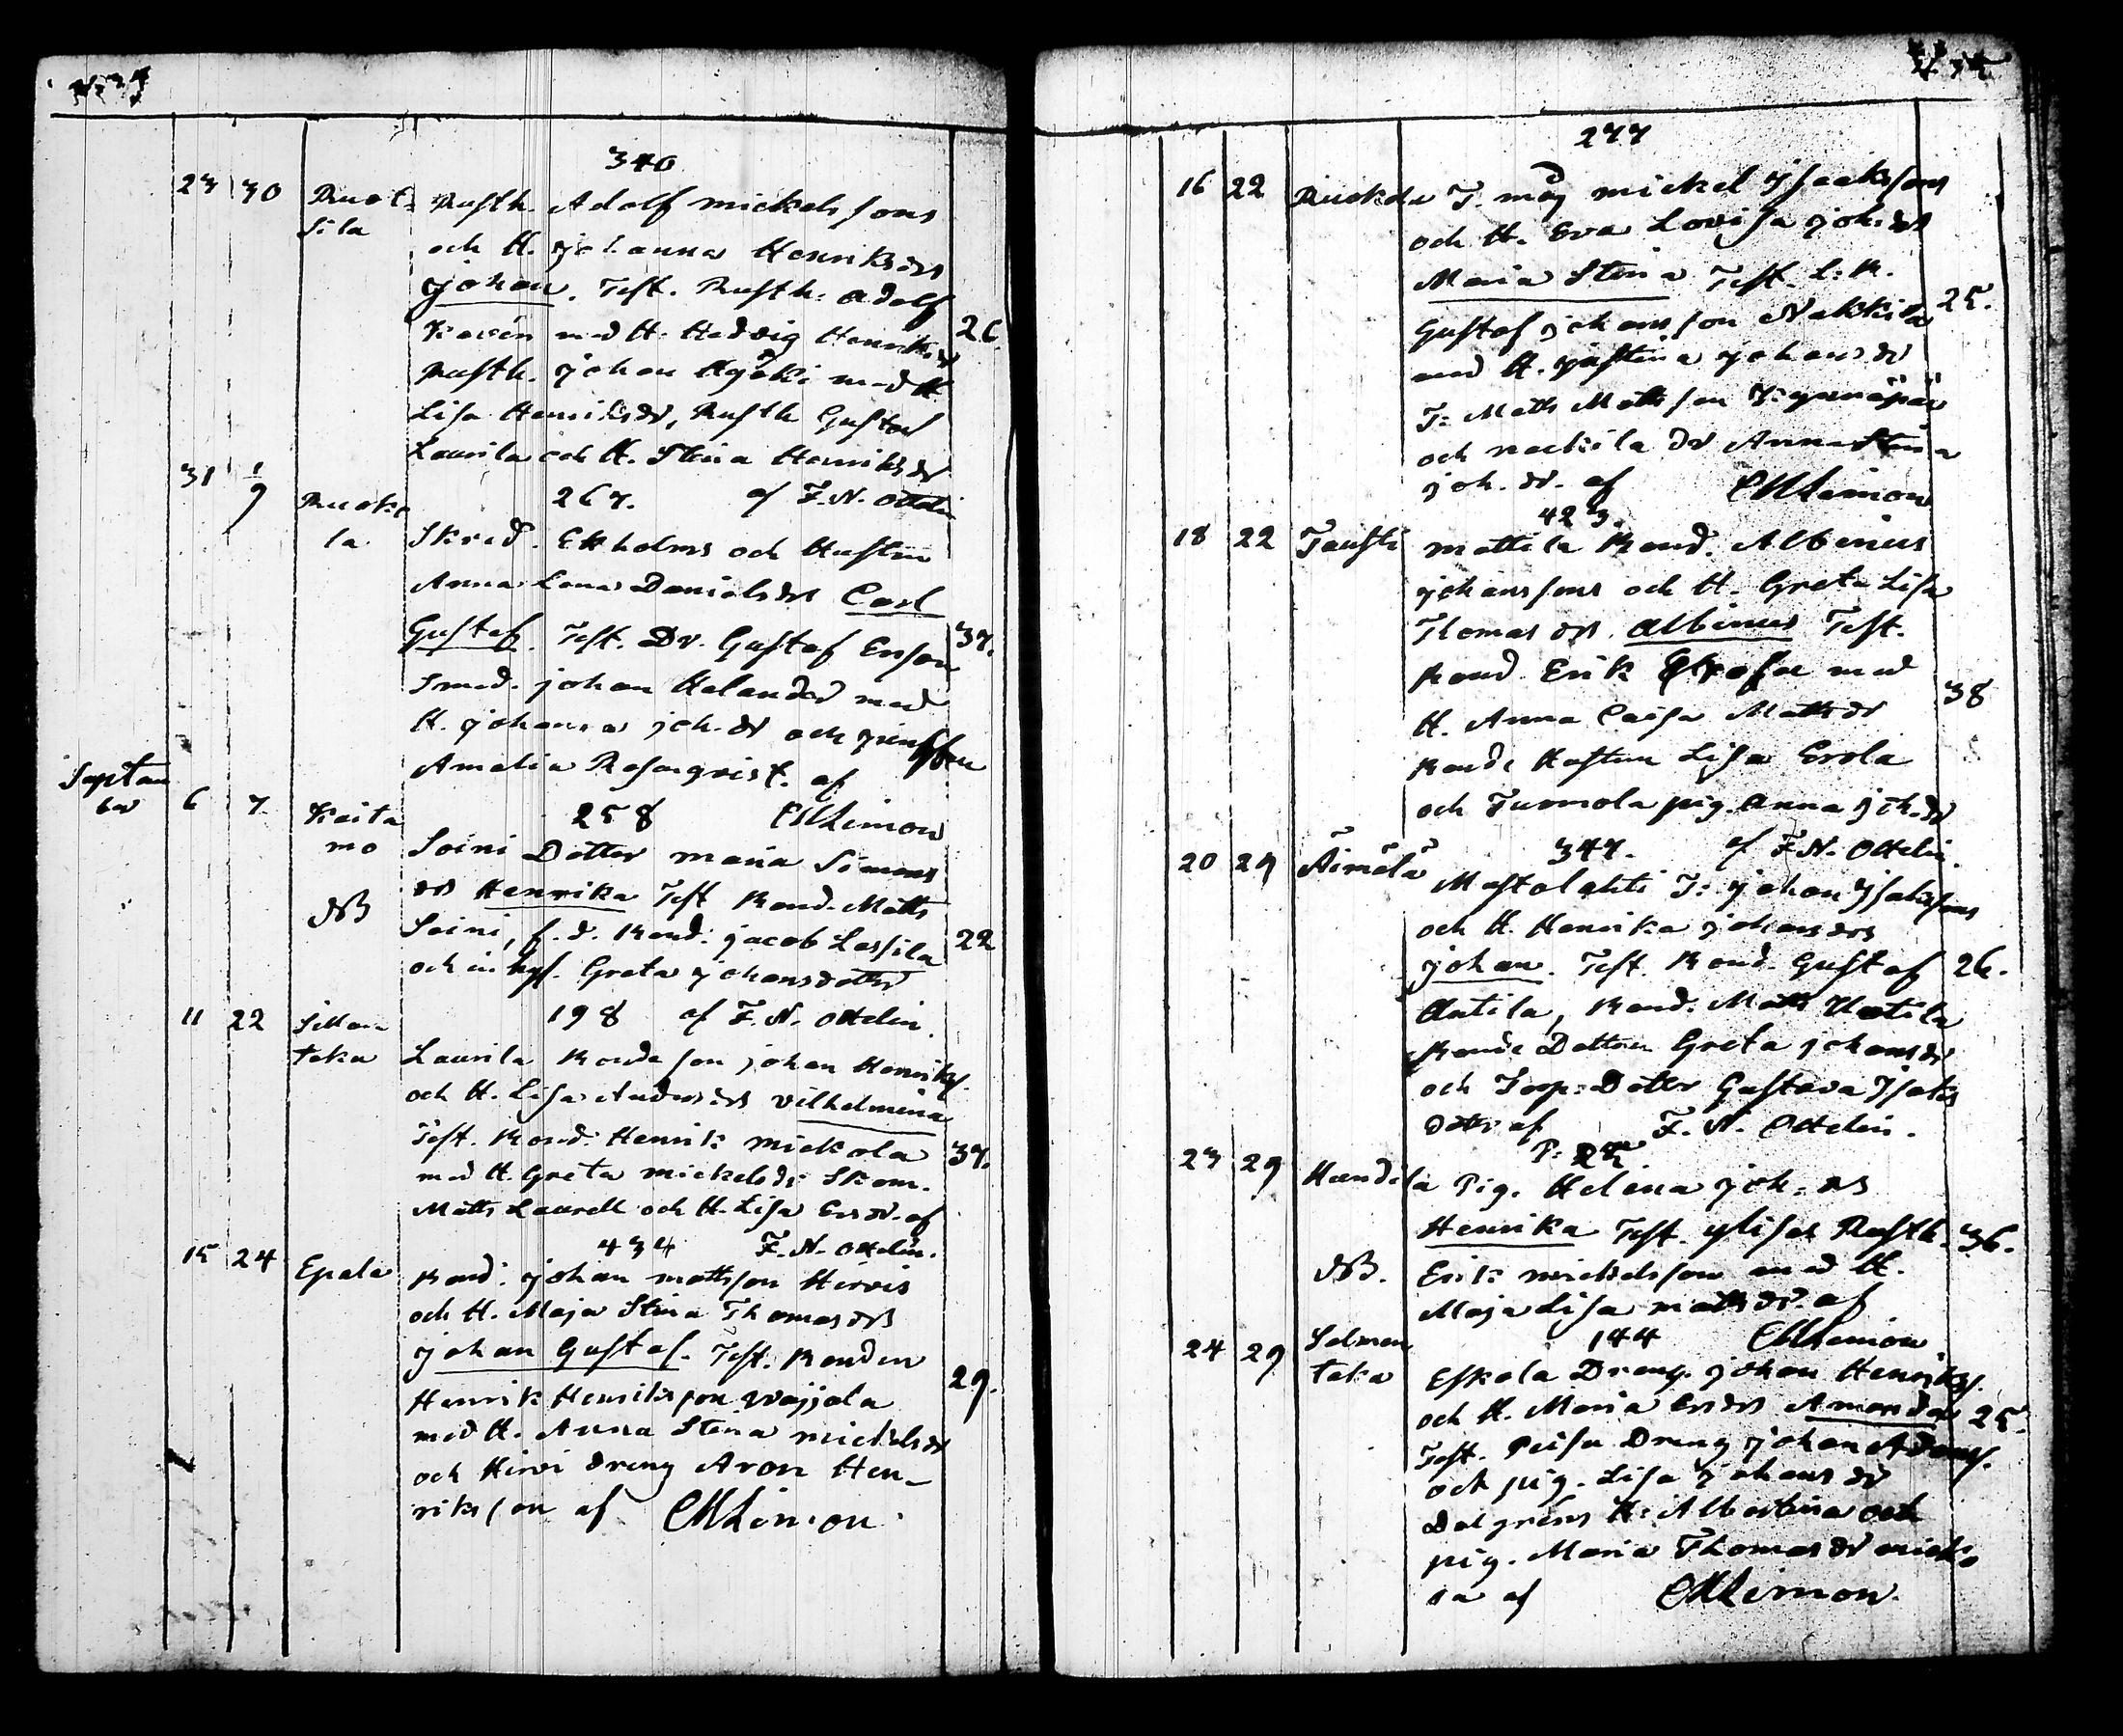 340
23 30 Ruot= Rusth. Adolf Mickelssons
sila och H. Johanna Henriksdrs
Johan. Test. Rusth: Adolf
med H. Hedvig Henriksdr 26.
Rusth. Johan med H
Lisa Henriksdr, Rusth Gustaf
Laurila och H. Stina Henriksdr
31 1/9 Ruoko 267. af F. N. Ottelin
la Skred. Ekholms och Hustru
Anna Lena Danielsdrs Carl
Gustaf. Test. Dr. Gustaf Ersson 37.
Smed. Johan Helander med
H. Johanna Joh. dr och
Amalia Rosenqvist. af
Septem
ber 6 7 Koita 258 CMLimon
mo Soini Dotter Maria Simons
drs Henrika Test Bond. Matts
NB Soini, f. d. Bond. Jacob Lassila 22
och inhys. Greta Johansdotter
11 22 Sillan 198 af F. N. Ottelin.
taka Laurila Bonde son Johan Henriks.
och H. Lisa Andersdrs Vilhelmina
Test. Bond. Henrik Mickola 37.
med H. Greta Mickelsdr Skom.
Matts Laurell och H. Lisa Ersdr. af
15 24 Epala 434 F. N. Ottelin.
Bond. Johan Mattsson Hirvis
och H. Maja Stina Thomasdrs
Johan Gustaf. Test. Bonden
Henrik Henriksson 29.
med H. Anna Stina Mickelsdr
och Hirvi dreng Aron Hen-
riksson af CMLimon.
277
16 22 Ruokola T. måg Mickel Isaakssons
och H. Eva Lovisa Joh. drs
Maria Stina Test. L: B.
Gustaf Johansson Nakkila 25.
med H. Justina Johansdr
T: Matts Mattsson
och Nackila dr Anna Stina
Joh. dr. af CMLimon
423.
18 22 Tausti Mattila Bond. Albinus
Johanssons och H. Greta Lisa
Thomas drs. Albinus Test.
Bond. Erik med
H. Anna Caisa Mattsdr 38
Bonde Hustrun Lisa Erola
och Tuomola pig. Anna Joh. dr
20 29 Äimälä 347. af F. N. Ottelin.
Mustalahti T: Johan Isakssons
och H. Henrika Johansdrs
Johan. Test. Bond. Gustaf 26.
Antila, Bond. Matts
Bonde Dottren Greta Johansdr
och Torp: Dotter Gustava Isaks
dotter af F. N. Ottelin.
23 29 Handila Pig. Helena Joh. drs
Henrika Test. Rusth. 36.
NB. Erik Mickelsson med H.
Maja Lisa Mattsdr. af
24 29 Salmen 144 CMLimon
taka Eskola Dreng. Johan Henriks.
och H. Maria Ersdrs Amanda 25.
Test. Dreng Johan Adams.
och pig. Lisa Johansdr
Dalgrens H: Albertina och
pig. Maria Thomasdr
af CMLimon.